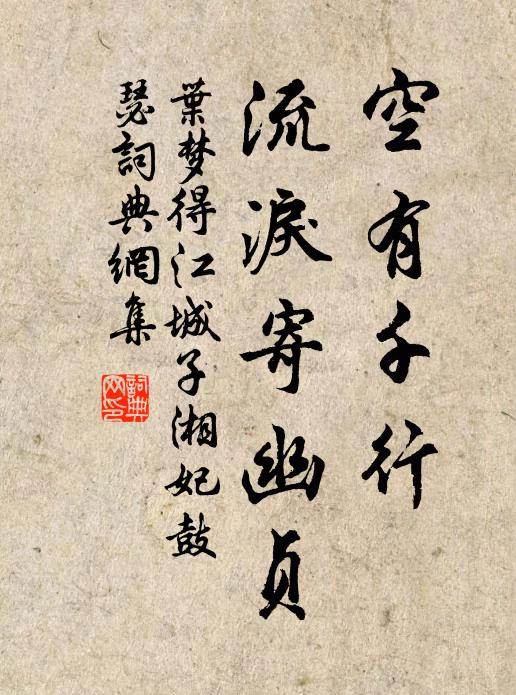 空有千行
流淚寄幽貞
葉梦得江城子湘妃鼓
瑟詞典網集
詞典
网印